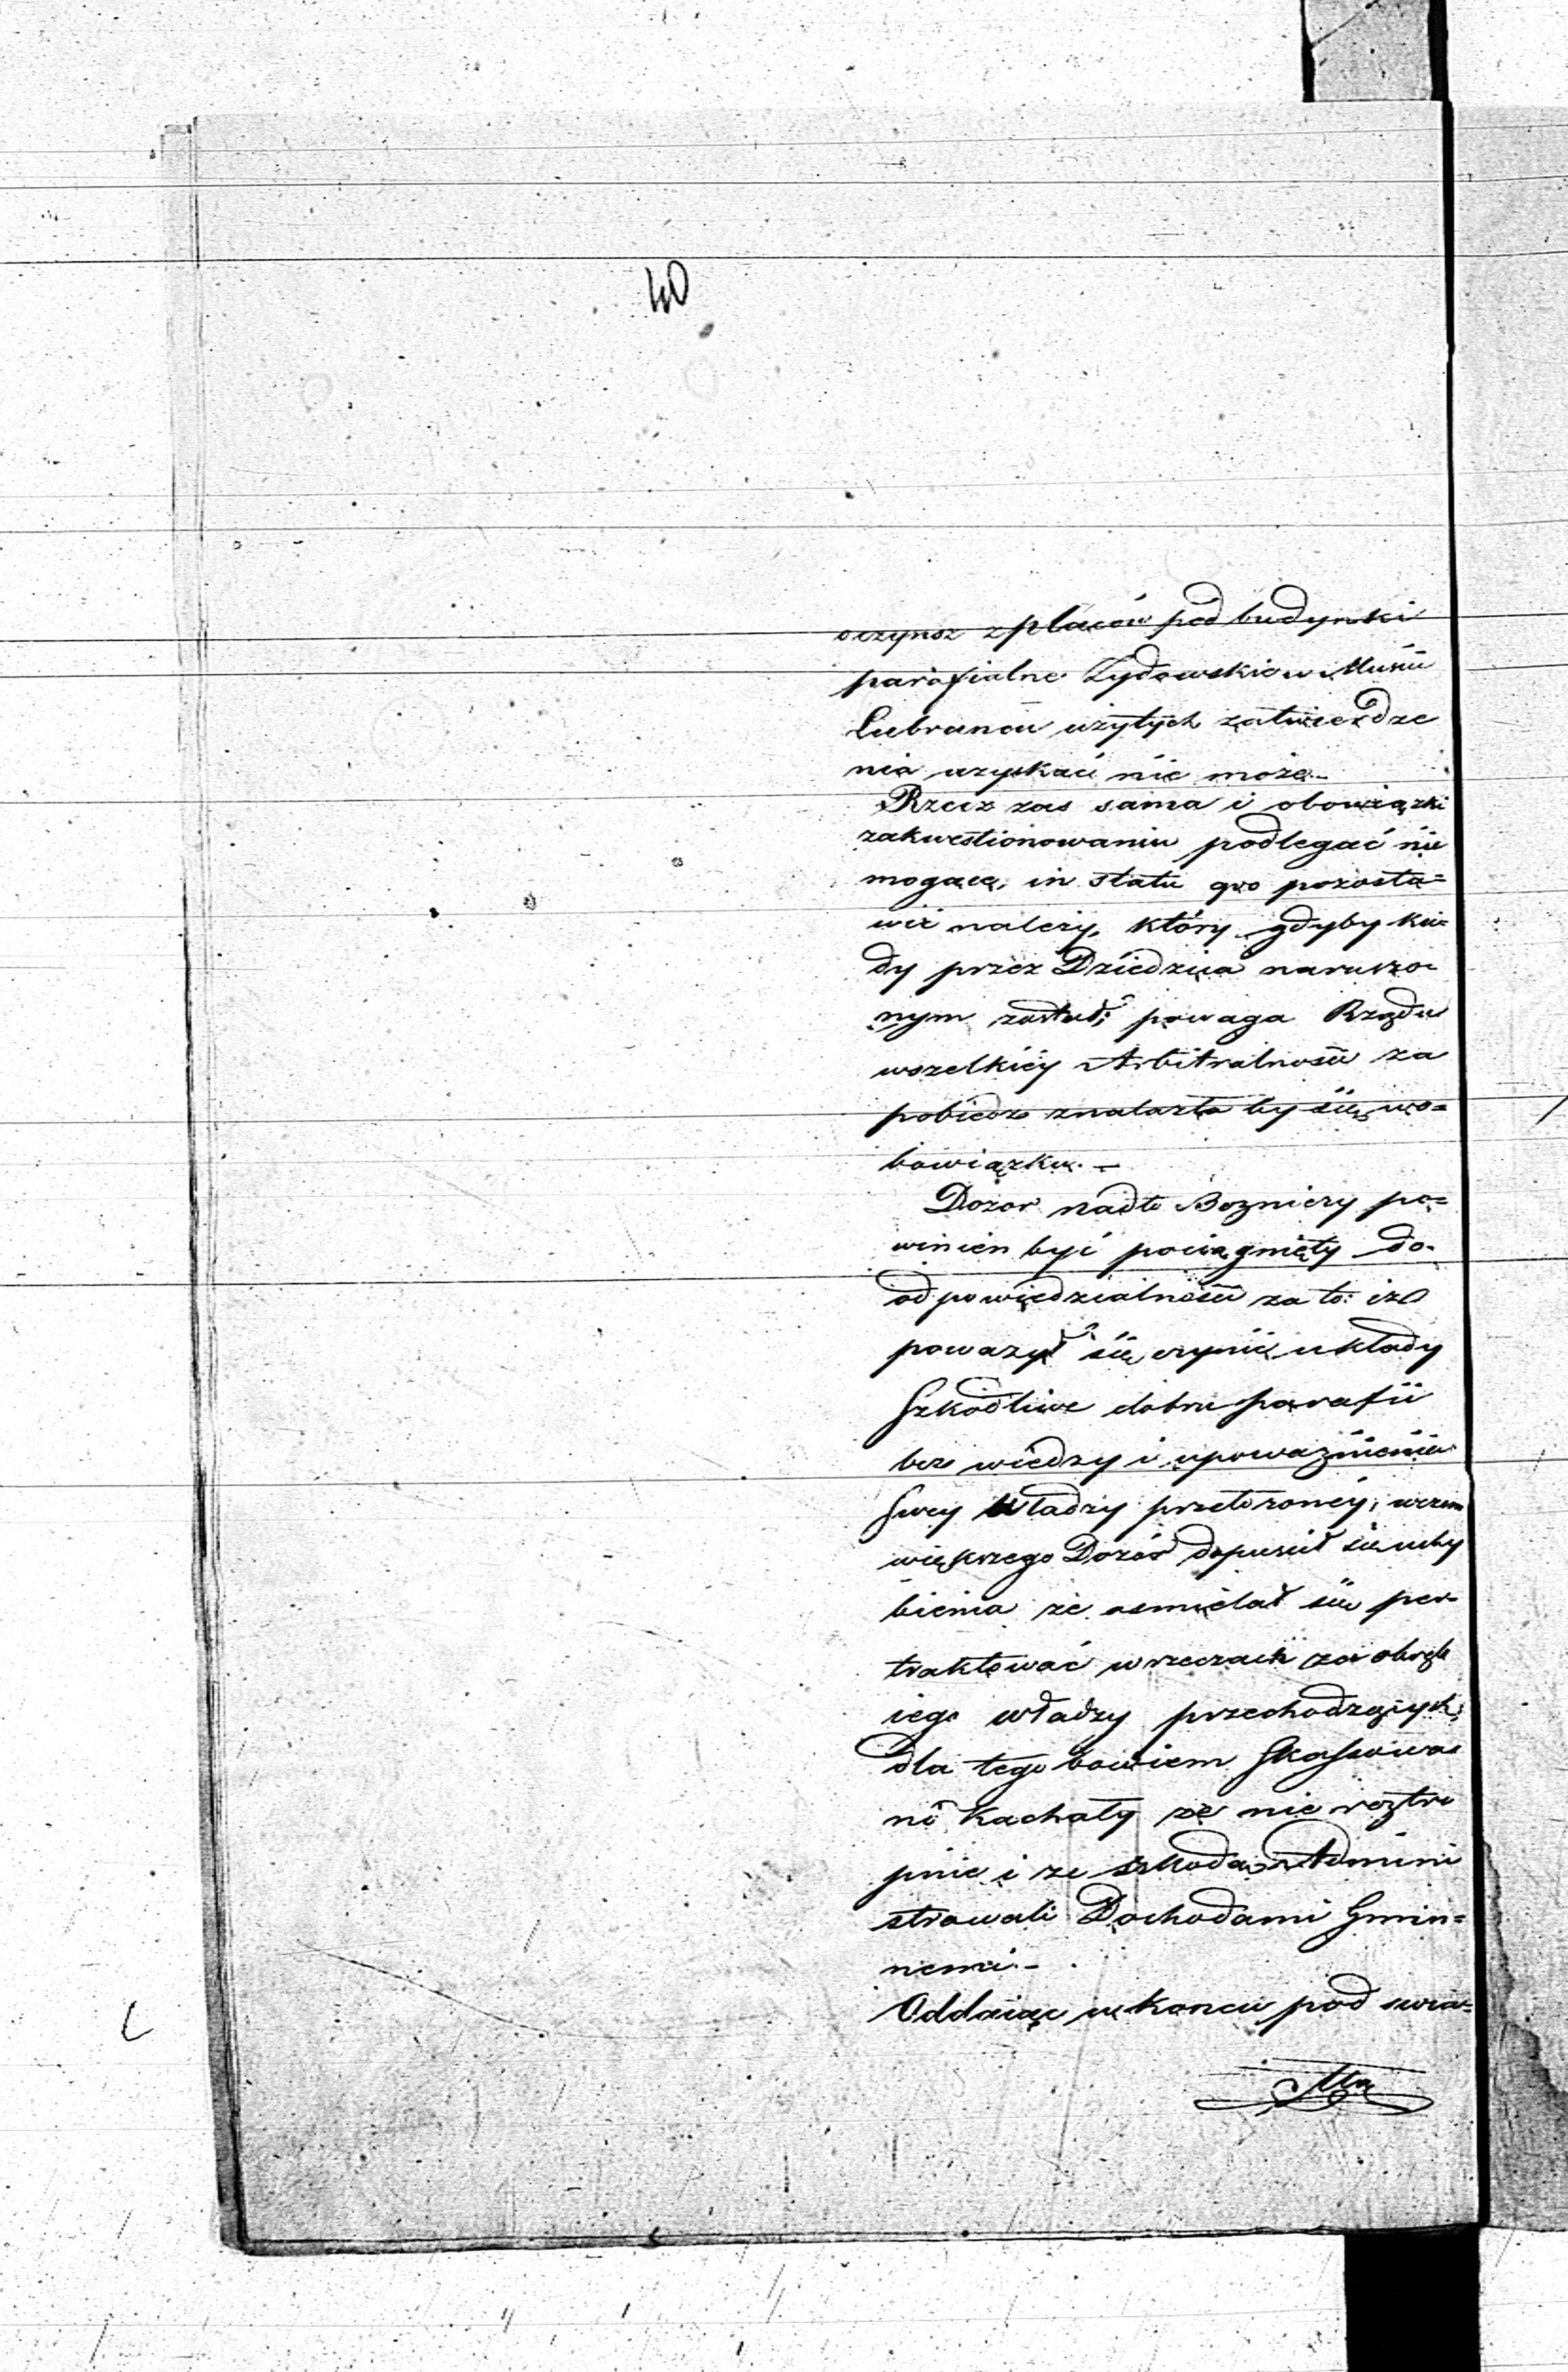 40
o czynsz z placów pod budynki
parafialne Żydowskie w Mieście
Lubrańcu użytych zatwierdze
nia uzyskać nie może.-
Rzecz zas sama i obowiązki
zakwestionowaniu podlegać nie
mogące, in statu quo pozosta=
wić należy, który gdyby kie=
dy przez Dziedzica naruszo
nym został; powaga Rządu
wszelkiéy Arbitralności za
pobiedz znalazła by się w o=
bowiązku. —
Dozor nadto Bozniczy po=
winien być pociągnięty do
odpowiedzialności za to: iz
powazył się czynić układy
Szkodliwe dobru parafii
bez wiedzy i upoważnienia
Swey Władzy przełożonéy, w czem
większego Dozór dopuścił się uchy
bienia że osmielał się per
traktować w rzeczach za obręb
iego władzy przechodzących;
Dla tego bowiem Skassowa
ni Kachały że nie roztro
pnie i ze szkodą Admini
strowali Dochodami Gmin=
nemi.-
Oddaiąc w koncu pod swia=